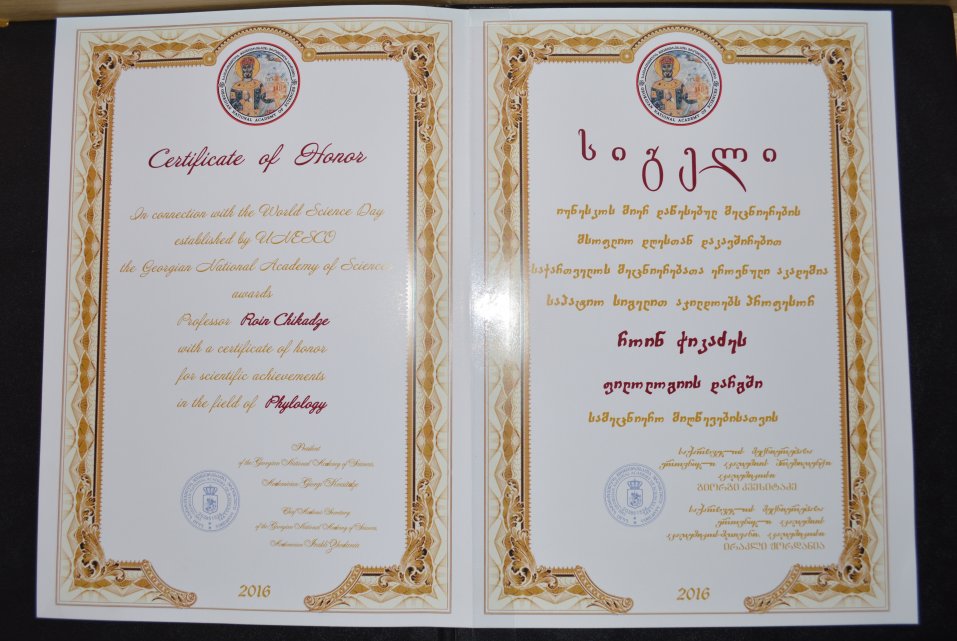 Certificate of Honor
In connection with the World Science Day
established by UNESCO
the Georgian National Academy of Sciences
awards
Professor Roin Chikadze
with a certificate of honor
for scientific achievements
in the field of Phylology
President
of the Georgian National Academy of Sciences
Academician Giorgi Kvesitadze
Chief Academic Secretary
of the Georgian National Academy of Sciences
Academician Irakli Zhordania
2016
GEORGIAN NATIONAL ACADEMY OF SCIENCES
სიგელი
იუნესკოს მიერ დაწესებულ მეცნიერების
მსოფლიო დღესთან დაკავშირებით
საქართველოს მეცნიერებათა ეროვნული აკადემია
საპატიო სიგელით აჯილდოებს პროფესორ
როინ ჭიკაძეს
ფილოლოგიის დარგში
სამეცნიერო მიღწევებისათვის
საქართველოს მეცნიერებათა
ეროვნული აკადემიის პრეზიდენტი
აკადემიკოსი
გიორგი კვესიტაძე
საქართველოს მეცნიერებათა
ეროვნული აკადემიის
აკადემიკოს-მდივანი, აკადემიკოსი
ირაკლი ჟორდანია
2016